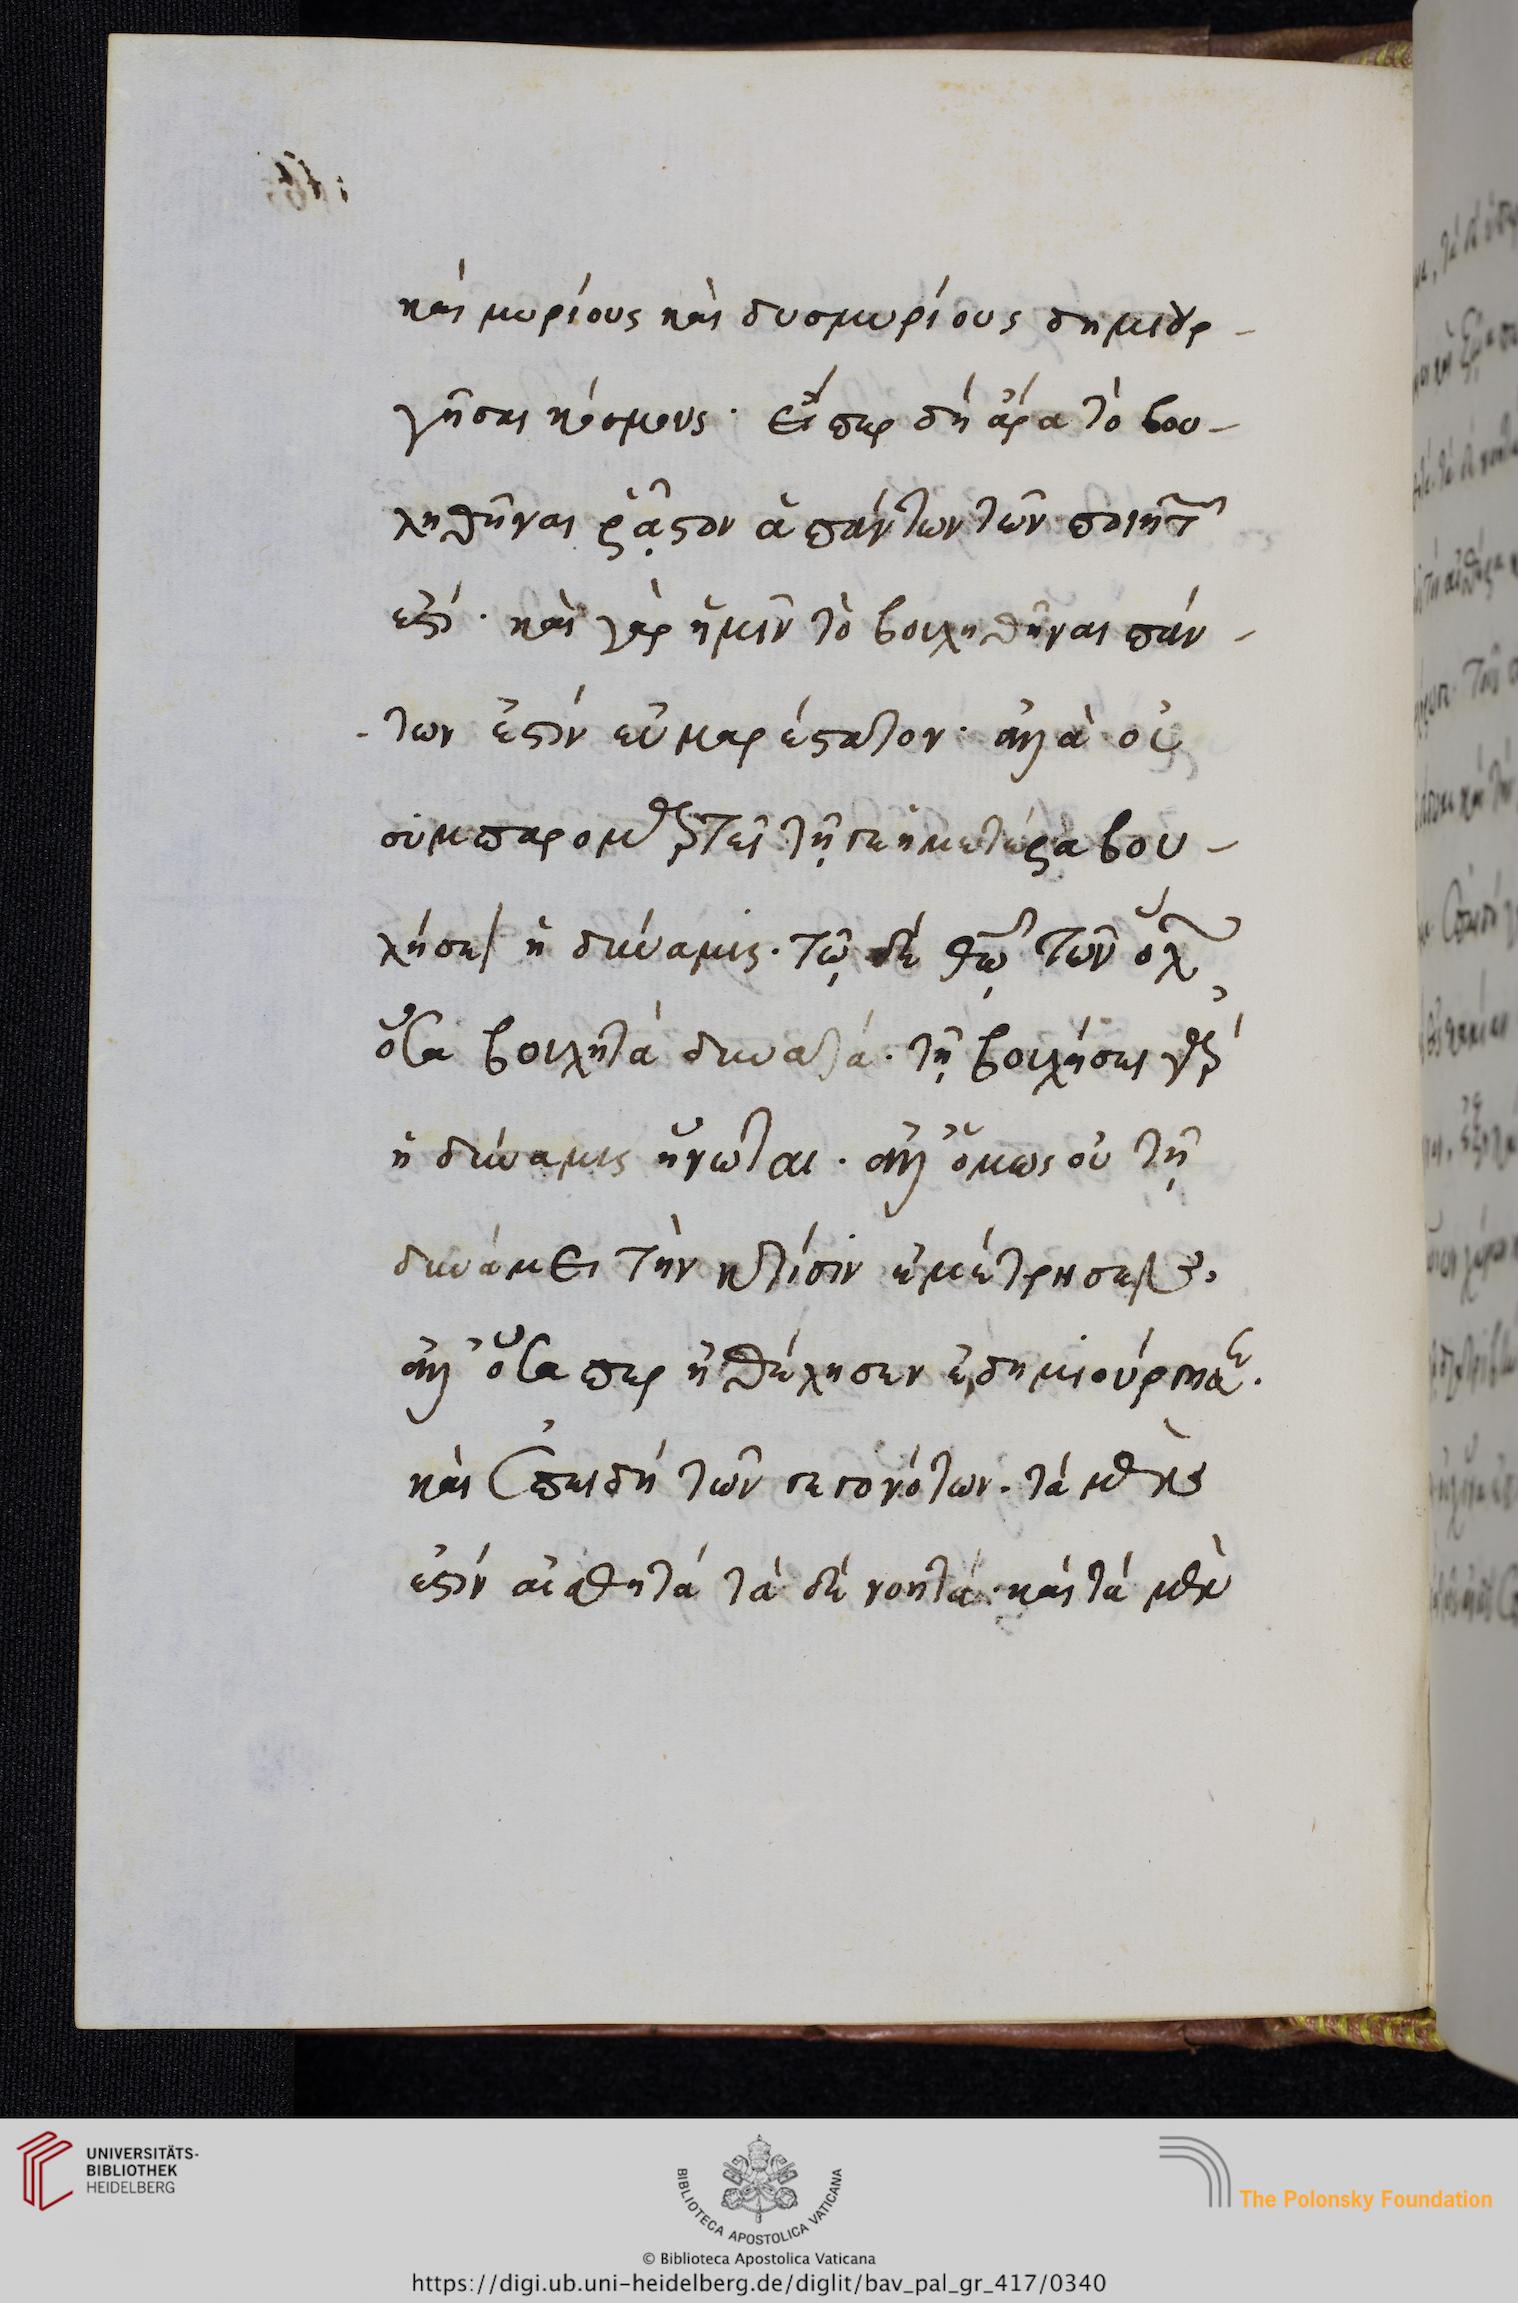 καὶ μυρίους καὶ δυσμυρίους δημιουρ-
γῆσαι κόσμους· εἴπερ δὴ ἄρα τὸ βου-
ληθῆναι ῥᾷστον ἁπάντων τῶν ποιητῶν
ἐστί· καὶ γὰρ ἡμῖν τὸ βουληθῆναι πάν-
των ἐστὶν εὐμαρέστατον· ἀλλὰ οὐ
συμπαρομαρτεῖ τῇ γε ἡμετέρα βου-
λήσει ἡ δύναμις. τῷ δὲ θεῷ τῶν ὅλων
ὅσα βουλητὰ δυνατά. τῇ βουλήσει γὰρ
ἡ δύναμις ἥνωται. ἀλλ' ὅμως οὐ τῇ
δυνάμει τὴν κτίσιν ἐμέτρησεν,
ἀλλ' ὅσα περ ἠθέλησεν ἐδημιούργησεν.
καὶ ἐπειδὴ τῶν γεγονότων. τὰ μὲν
ἐστὶν αἰσθητὰ τὰ δὲ νοητά. καὶ τὰ μὲν
UNIVERSITÄTS-
BIBLIOTHEK
HEIDELBERG
BIBLIOTECA APOSTOLICA VATICANA
The Polonsky Foundation
© Biblioteca Apostolica Vaticana
https://digi.ub.uni-heidelberg.de/diglit/bav_pal_gr_417/0340